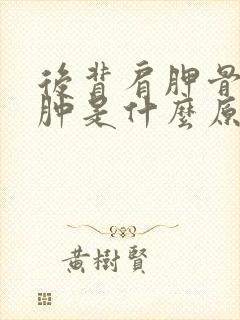 後背肩胛骨
肿是什麽原
黃樹賢